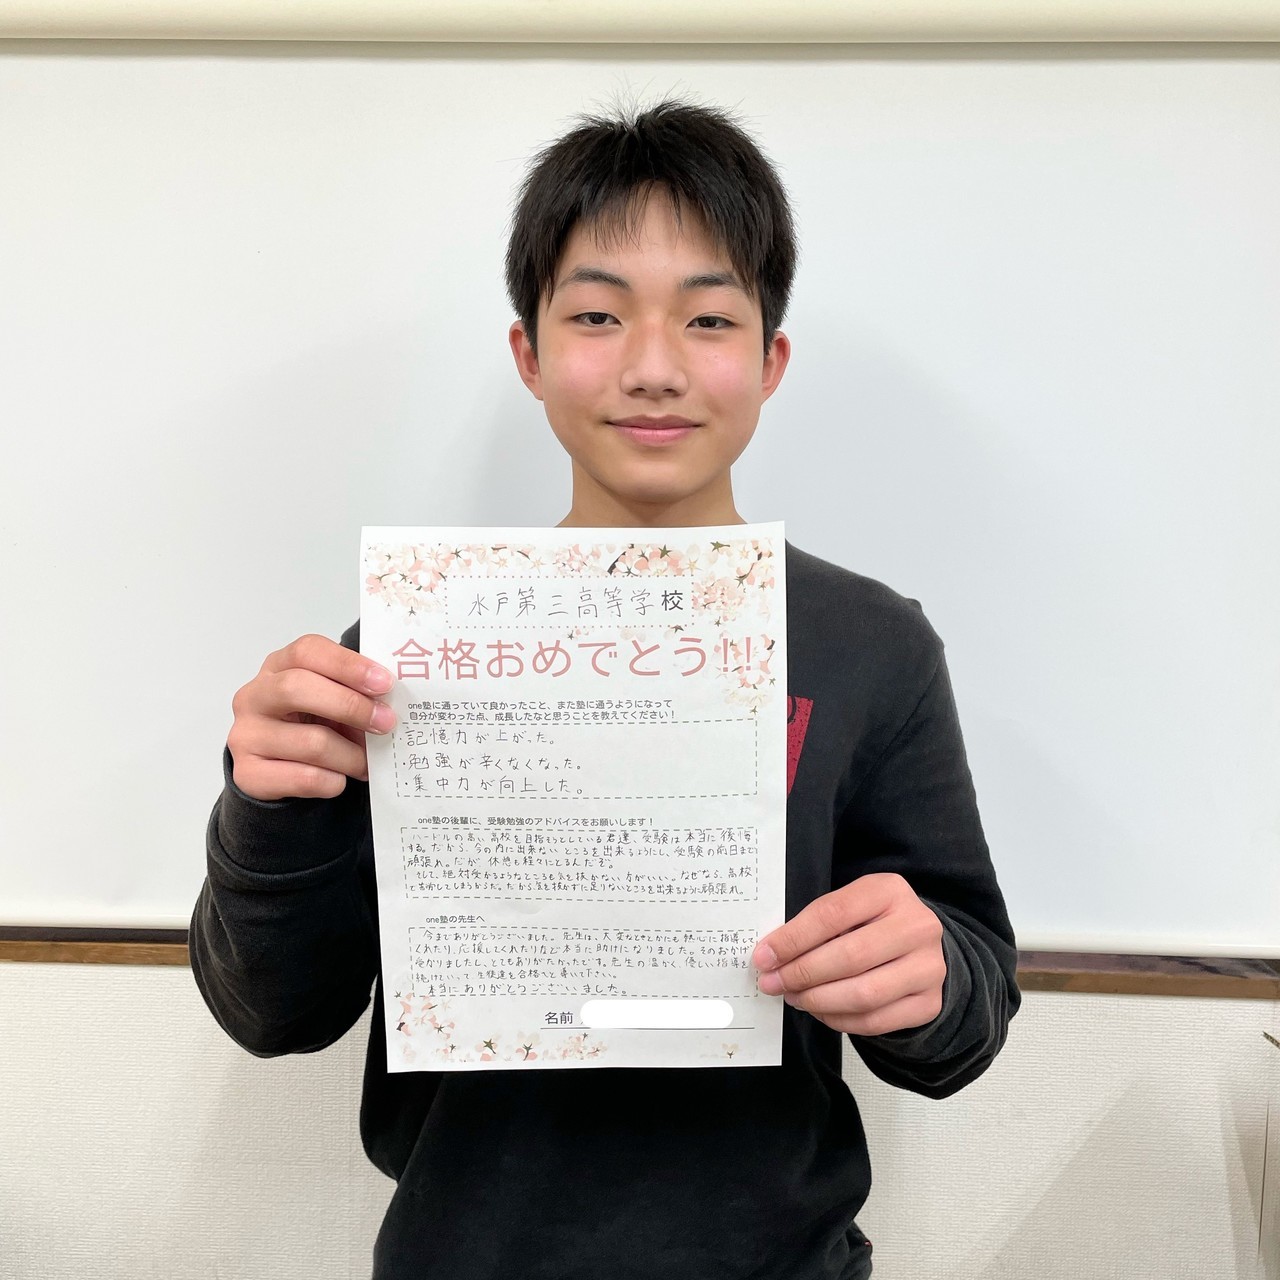 水戸第三高等学校
合格おめでとう!!
one塾に通っていて良かったこと、また塾に通うようになって
自分が変わった点、成長したなと思うことを教えてください！
・記憶力が上がった。
・勉強が辛くなくなった。
・集中力が向上した。
one塾の後輩に、受験勉強のアドバイスをお願いします！
ハードルの高い高校を目指そうとしている君達、受験は本当に後悔
する。だから、今の内に出来ないところを出来るようにし、受験の前日まで
頑張れ。だが、休憩も程々にとるんだぞ。
そして、絶対受かるようなところも気を抜かない方がいい。なぜなら、高校
で苦労してしまうからだ。だから気を抜かずに足りないところを出来るように頑張れ。
one塾の先生へ
今までありがとうございました。先生は、大変なときとかにも熱心に指導して
くれたり、応援してくれたりなど本当に助けになりました。そのおかげ
受かりましたし、とてもありがたかったです。先生の温かく、優しい指導を
続けていって、生徒達を合格へと導いて下さい。
本当にありがとうございました。
名前